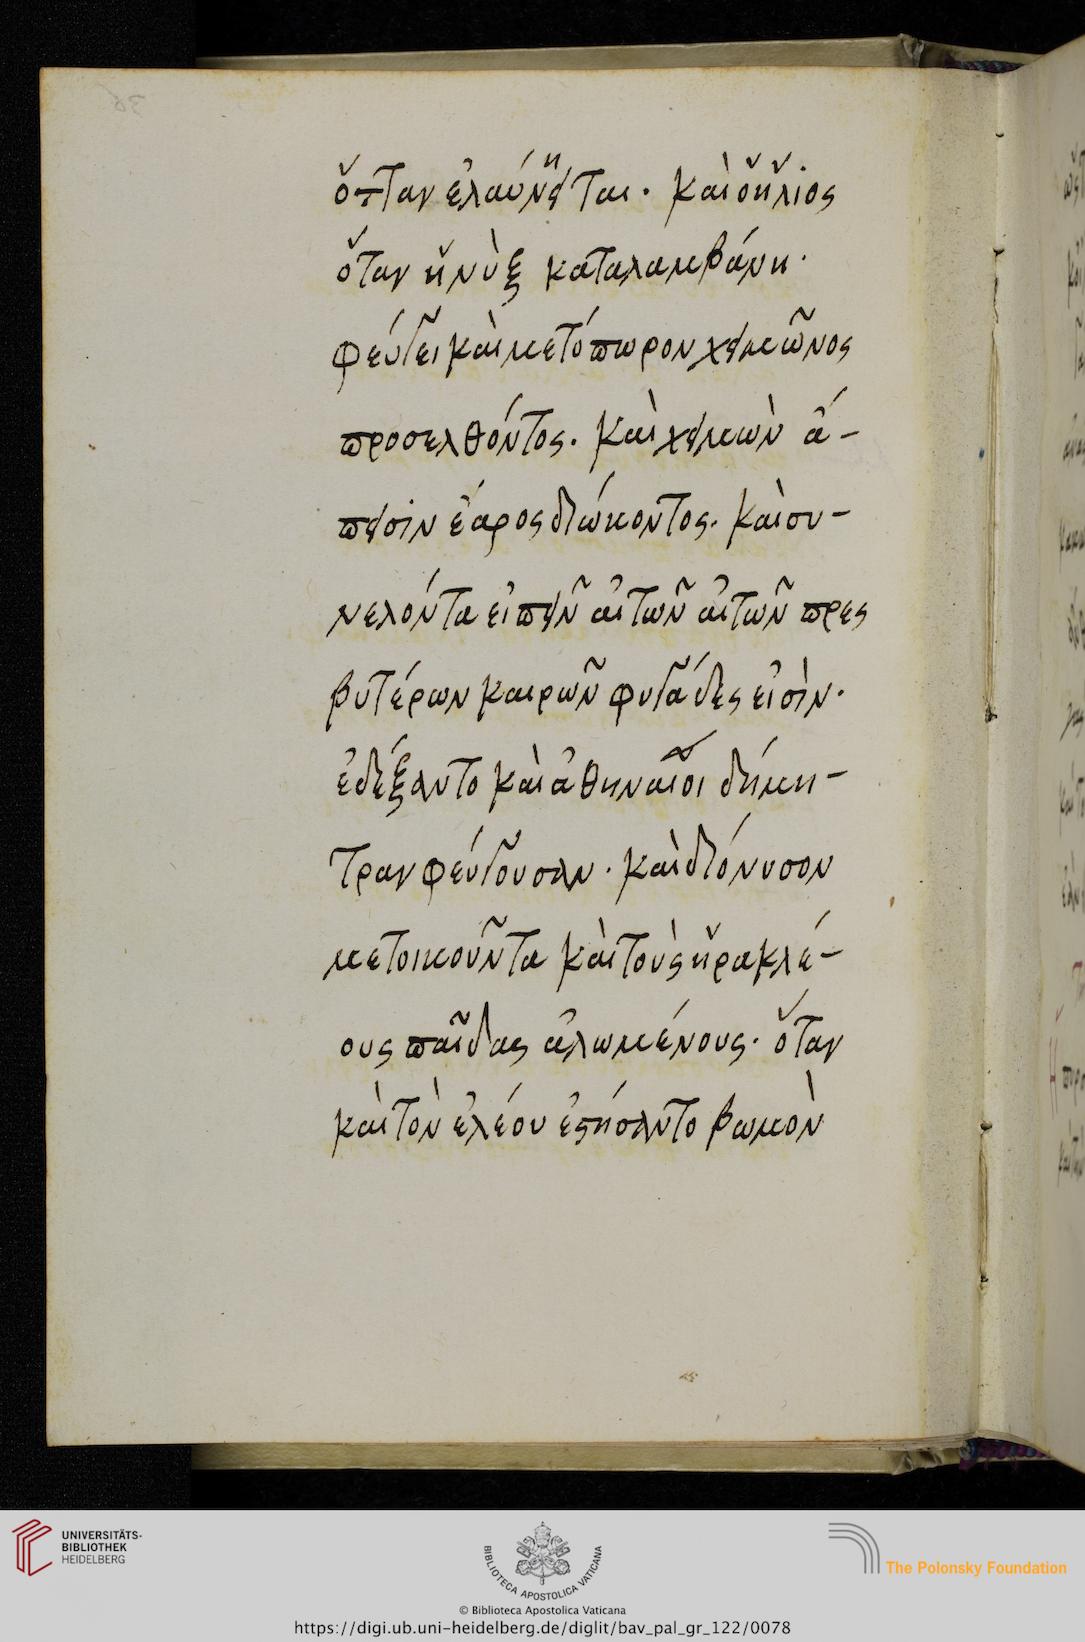 ὅταν ἐλαύνηται. καὶ ὁ ἥλιος
ὅταν ἡ νὺξ καταλαμβάνη.
φεύγει καὶ μετόπωρον χειμῶνος
προσελθόντος. καὶ χειμὼν ἄ-
πεισιν ἔαρος διώκοντος. καὶ συ-
νελόντα εἰπεῖν αἱ τῶν αἱ τῶν πρεσ
βυτέρων καιρῶν φυγάδες εἰσὶν.
ἐδέξαντο καὶ ἀθηναῖοι δήμη-
τραν φεύγουσαν. καὶ διόνυσον
μετοικοῦντα καὶ τοὺς ἡρακλέ-
ους παῖδας ἀλωμένους. ὅταν
καὶ τὸν ἐλέου ἐστήσαντο βωμὸν
UNIVERSITÄTS-
BIBLIOTHEK
HEIDELBERG
BIBLIOTECA APOSTOLICA VATICANA
The Polonsky Foundation
© Biblioteca Apostolica Vaticana
https://digi.ub.uni-heidelberg.de/diglit/bav_pal_gr_122/0078